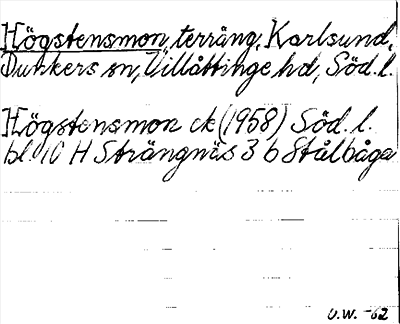 Högstensmon, terräng, Karlsund,
Dunkers sn, Villåttinge hd, Söd. l.
Högstensmon ek (1958) Söd. l.
bl. 10 H Strängnäs 3 b Stålbåga
U.W. -62